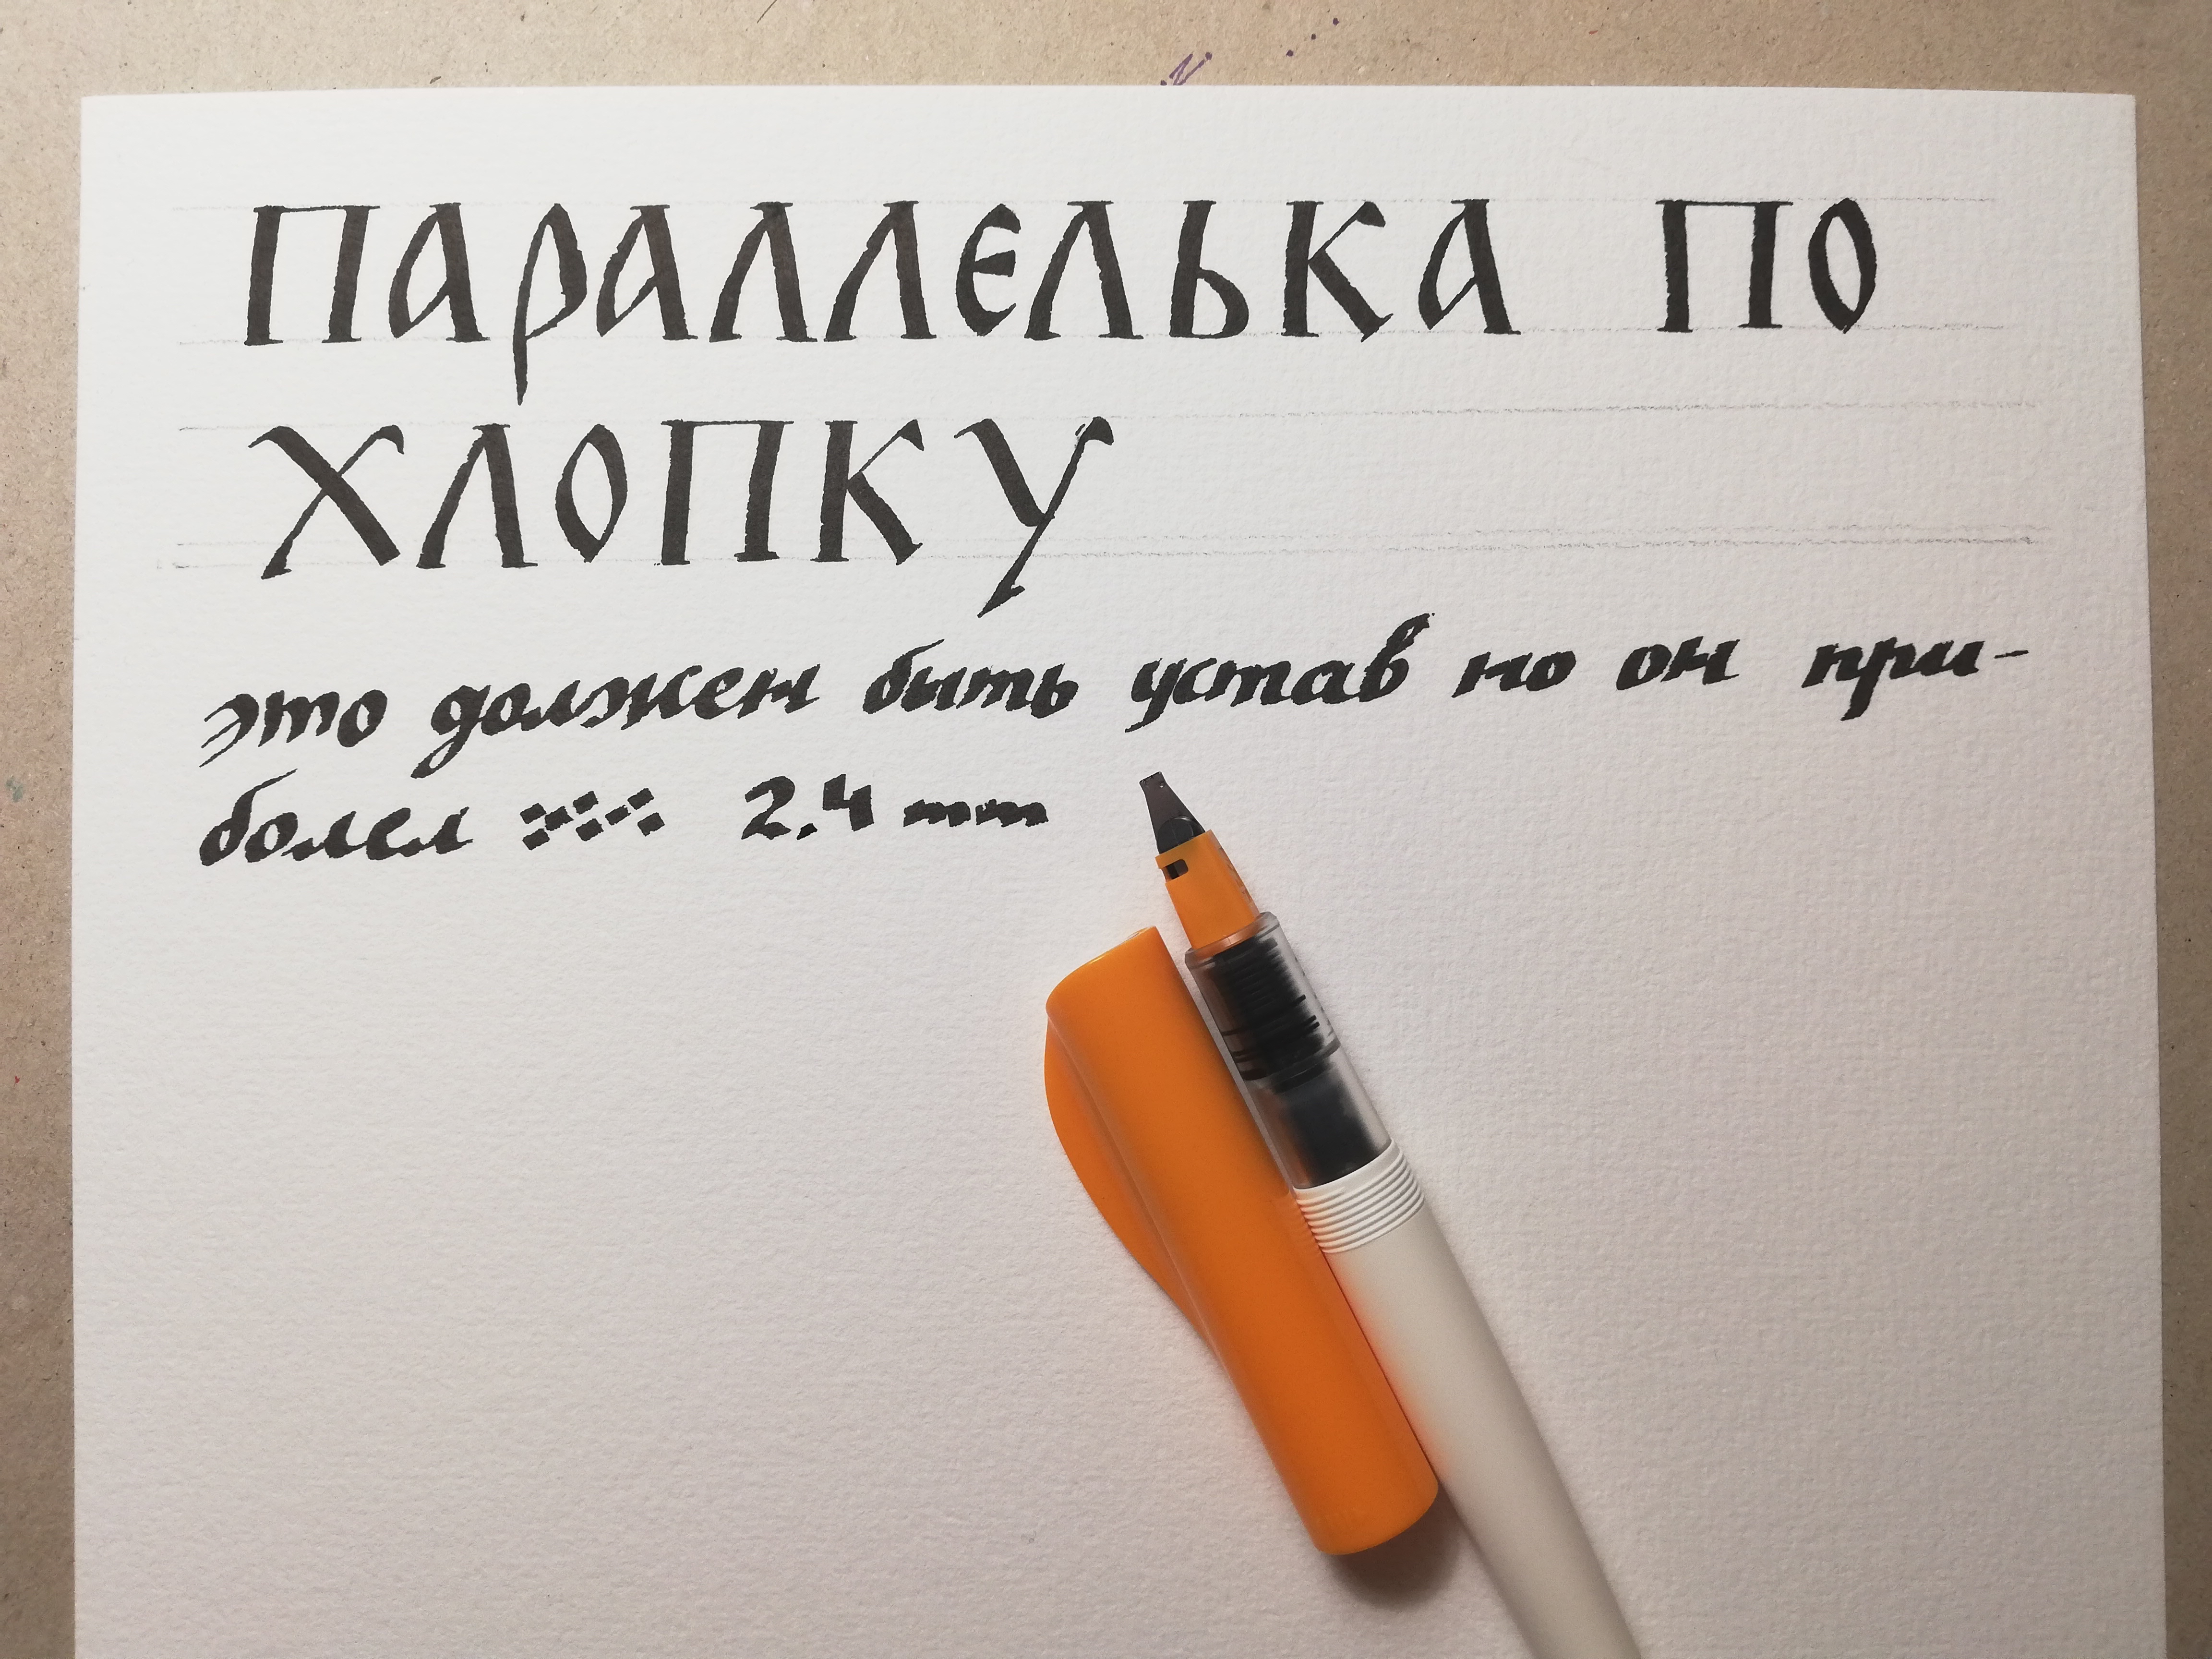 ПАРАЛЛЕЛЬКА ПО
ХЛОПКУ
это должен быть устав но он при-
болел 2.4 mm